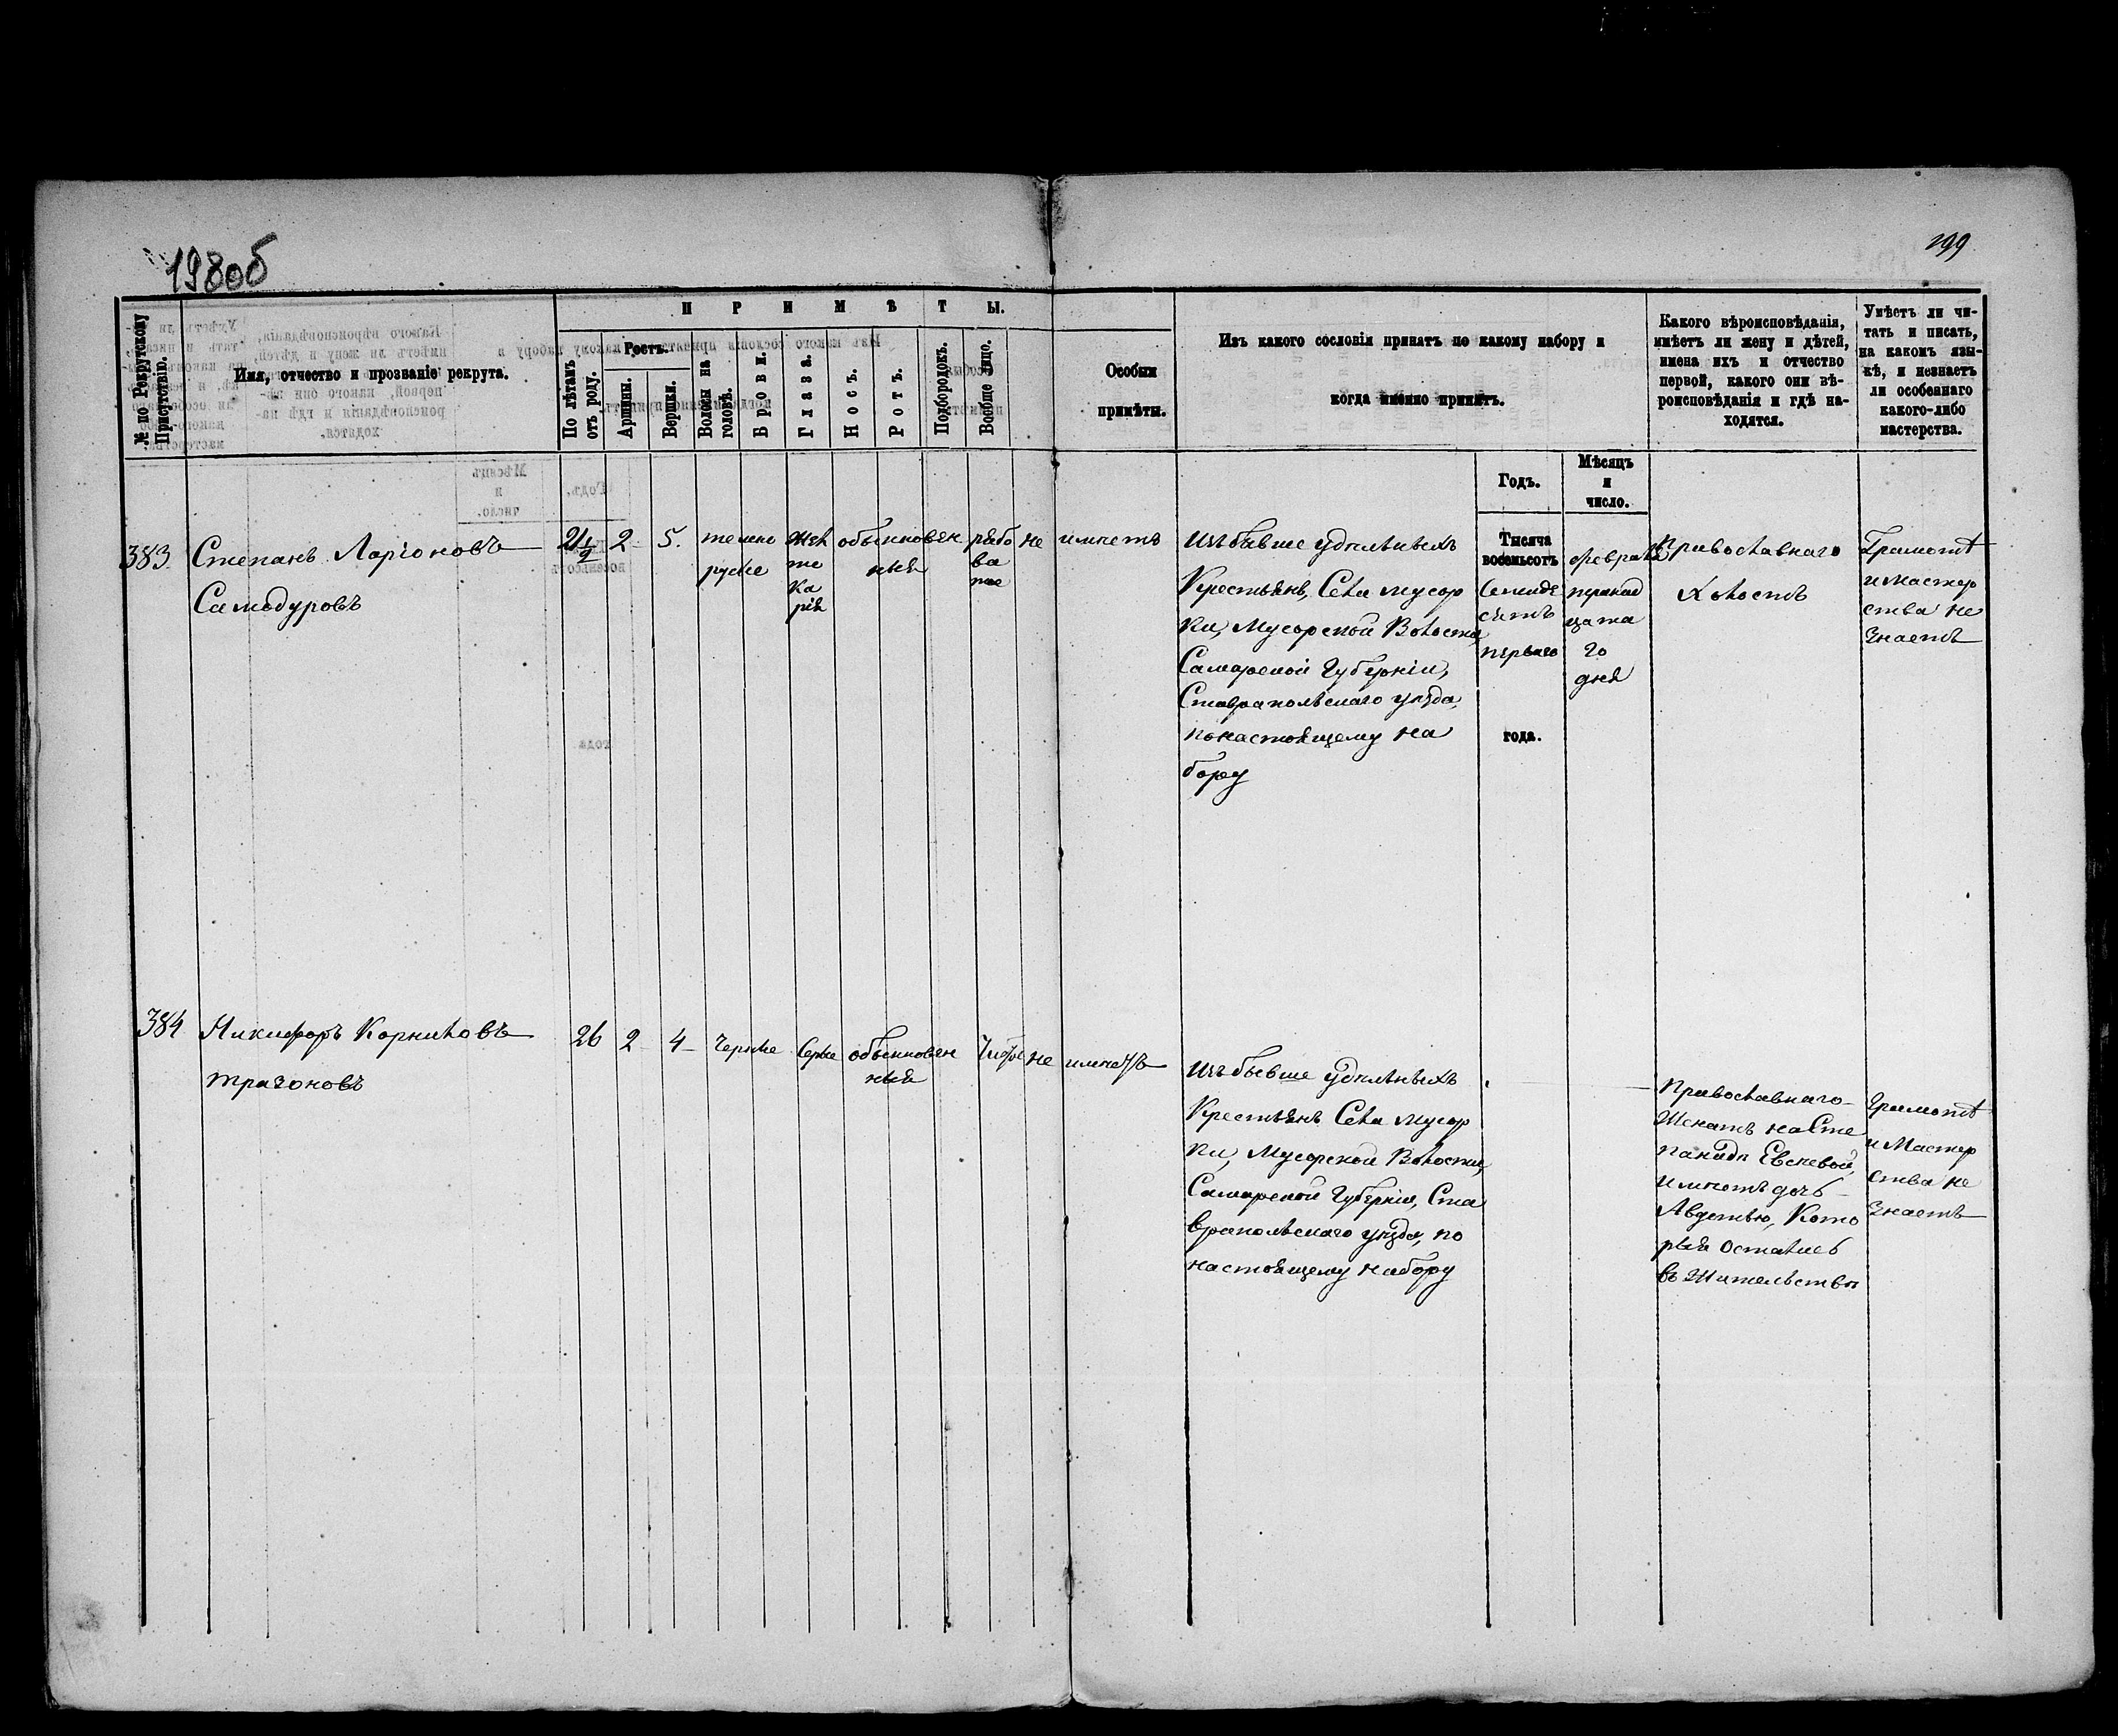 198об
199
№ по Рекрутскому Присутствію.
Имя, отчество и прозваніе рекрута.
ПРИМѢТЫ.
По лѣтамъ отъ роду.
Ростъ.
Аршины.
Вершки.
Волосы на головѣ.
Брови.
Глаза.
Носъ.
Ротъ.
Подбородокъ.
Вообще лицо.
Особыя
примѣты.
Изъ какого сословія принятъ по какому набору и
когда именно принятъ.
Какого вѣроисповѣданія,
имѣетъ ли жену и дѣтей,
имена ихъ и отчество
первой, какого они вѣ-
роисповѣданія и гдѣ на-
ходятся.
Умѣетъ ли чи-
тать и писать,
на какомъ язы-
кѣ, и незнаетъ
ли особеннаго
какого-либо
мастерства.
Годъ.
Мѣсяцъ
и
число.
383.
Степанъ Ларіоновъ
Самодуровъ
21 1/2
2
5.
темно
русые
обыкновен
ныя
рябо
ва
тое
не имѣетъ
Изъ бывше удѣльныхъ
Крестьянъ, Села Мусор
ки, Мусорской Волости,
Самарской Губерніи,
Ставропольскаго уѣзда,
по настоящему на
бору
Тысяча
восемьсотъ
Семиде
сятъ
перваго
года.
Февраля
перьвнад
цата
го
дня
Православнаго
Холостъ
Грамотѣ
и мастер
ства не
знаетъ
384
Никифоръ Корниловъ
Трагоновъ
26
2
4
Черные
Серые
обыкновен
ныя
Чистое
не имѣетъ
Изъ бывше удѣльныхъ
Крестьянъ Села Мусор
ки, Мусорской Волости,
Самарской Губерніи, Ста
вропольскаго уѣзда, по
настоящему набору
Православнаго
Женатъ на Сте
панидѣ Евсеевой,
имѣетъ дочь
Авдотью, Кото
рыя остались
въ Жительствѣ
Грамотѣ
и Мастер
ства не
знаетъ